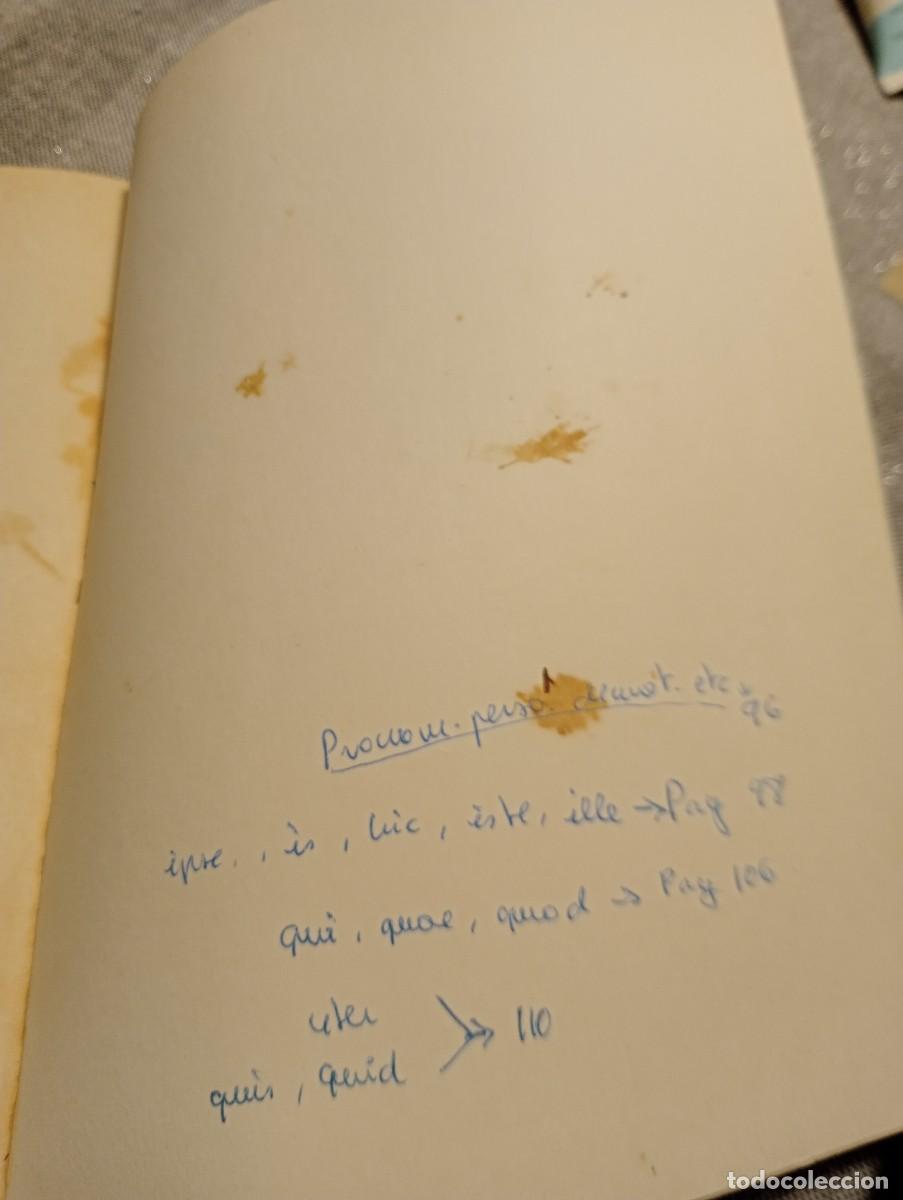 Pronom. perso. demost. etc → 96
ipse, is, hic, iste, ille → Pag 98
qui, quae, quod → Pag 106
uter
quis, quid
110
todocoleccion